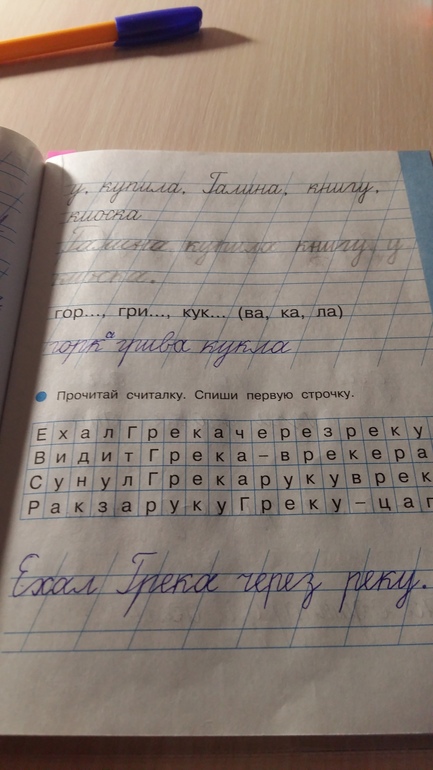 у, купила, Галина, книгу,
киоска
Галина купила книгу у
гор..., гри..., кук... (ва, ка, ла)
горка грива кукла
Прочитай считалку. Спиши первую строчку.
ЕхалГрекачерезреку
ВидитГрека–врекера
СунулГрекарукуврек
РакзарукуГреку–цап
Ехал Грека через реку.